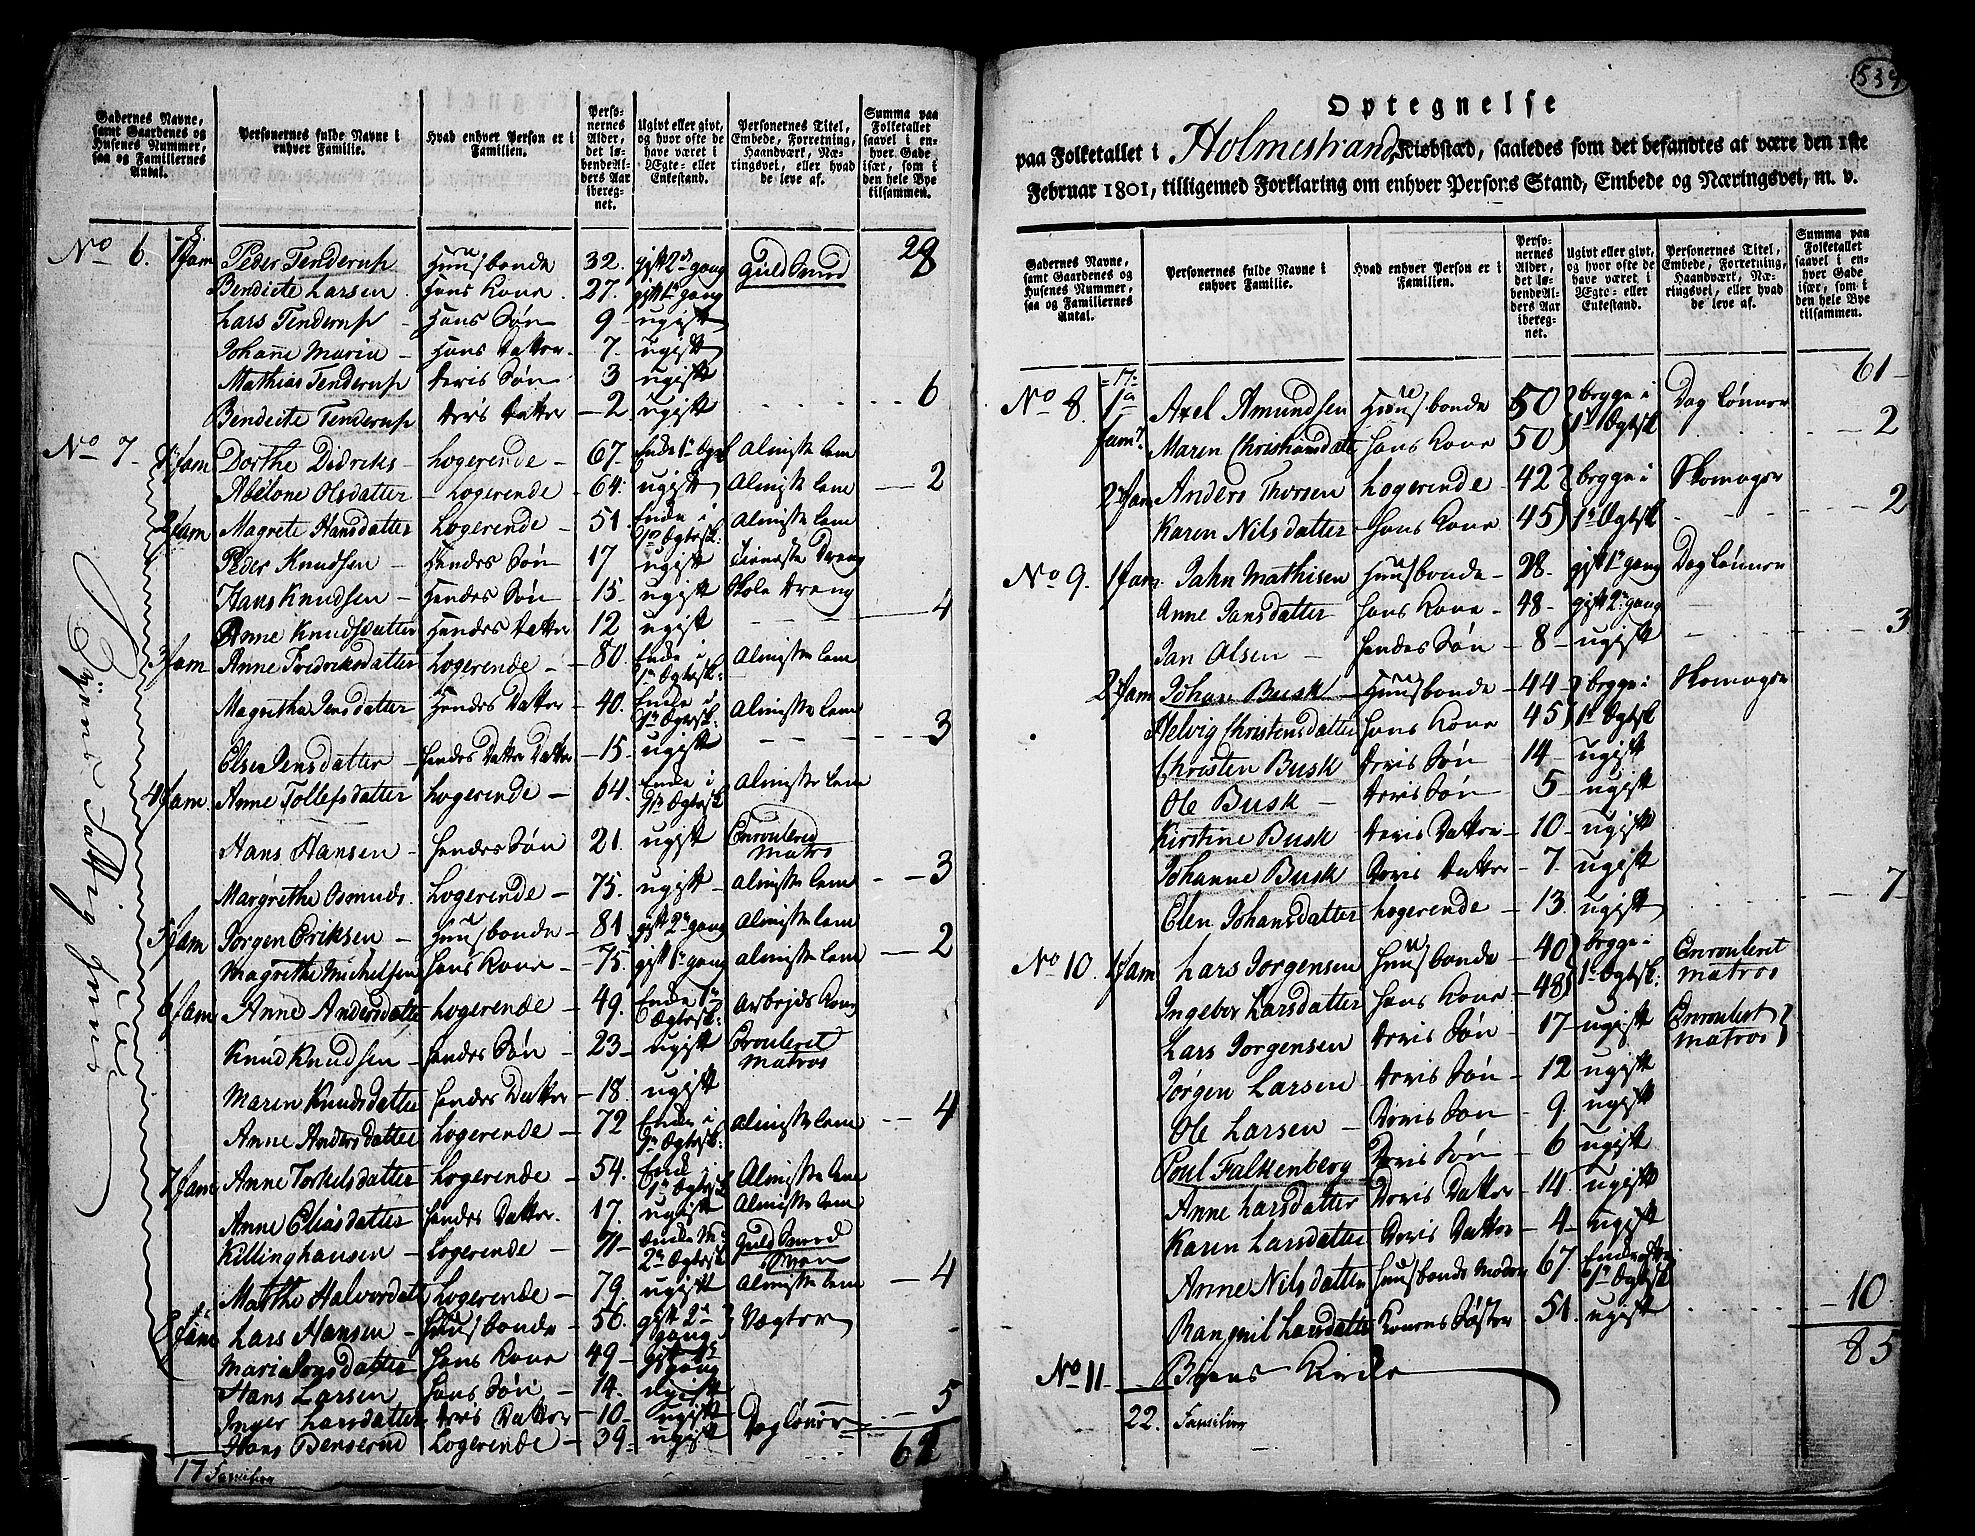 Gadernes Navne, samt Gaardenes og Husenes Nummer, saa og Familiernes Antal.
Personernes fulde Navne i enhver Familie.
Hvad enhver Person er i Familien.
Personernes Alder, det løbendeAlders Aar iberegnet.
Ugivt eller givt, og hvor ofte de have været i Ægte- eller Enkestand.
Personernes Titel, Embede, Forretning, Haandværk, Næringsvei, eller hvad de leve af.
Summa paa Folketallet saavel i enhver Gade især, som i den hele Bye tilsammen.
28
No 6. 1 fam Peder Tenderup Huusbonde 32. gift 2den gang Guld Smed
Bendicte Larsen hans Kone 27. gift 1te gang
Lars Tenderup Hans Søn 9 ugift
Johanne Maria Hans Datter 7. ugift
Mathias Tenderup deres Søn 3 ugift
Bendicte Tenderup deres datter 2 ugift 6
No 7. 1 fam Dorthe Dedriks Logerende 67. Almisse lem
Abelone Olsdatter Logerende 64. ugift Almisse lem 2
2 fam Magrete Hansdatter Logerende 51. Enke i 1te Ægtesk: Almisse lem
Peder Knudsen Hendes Søn 17 ugift Tieneste Dreng
Hans Knudsen Hendes Søn 15. ugift Skole dreng
Anne Knudsdatter Hendes datter 12 ugift 4
3 fam Anne Fredriksdatter Logerende 80. Enke i 1te Ægtesk: Almisse lem
Magretha Jensdatter Hendes Datter 40. Enke i 1te Ægtesk: Almisse lem
Else Jensdatter hendes Datter Datter 15. ugift 3
4 fam Anne Tollefsdatter Logerende 64. Enke i 1te Ægtesk Almisse lem
Hans Hansen hendes Søn 21. ugift Enrouleret Matros
Margrethe Osmuds. Logerende 75. ugift Almisse lem 3
5 fam Jørgen Eriksen Huusbonde 81 gift 2den gang Almisse lem
Magrethe Michelsen hans Kone 75. gift 1te gang Almisse lem 2
6 fam Anne Andersdatter Logerende 49. Enke 1te Ægtesk: Arbejds Kone
Knud Knudsen hendes Søn 23 ugift Enrouleret Matros
Maren Knudsdatter hendes Datter 18. ugift
Anne Andersdatter Logerende 72 Enke i Ægtesk: Almisse lem 4
7 fam Anne Torkelsdatter Logerende 54. Enke i 1te Ægtesk Almisse lem
Anne Eliasdatter hendes Datter. 17. ugift Almisse lem
Killinghausen Logerende 71 2det Ægtesk Guld Smed Svend
Marthe Halvordat Logerende 79. ugift Almisse lem 4
8 fam Lars Hansen Huusbonde 56. gift 2den gang Vægter
Maria hans Kone 49 gang
Hans Larsen hans Søn 14. ugift
Inger Larsdatter deres Datter 10 ugift
Hans Benserud Logerende 39 ugift Dag lønner 5
17 Familier
Byens Fattig Huus
534
Optegnelse
paa Folketallet i Holmestrand Kiøbstæd, saaledes som det befandtes at være den 1ste
Februar 1801, tilligemed Forklaring om enhver Persons Stand, Embede og Næringsvei, m. v.
Gadernes Navne, samt Gaardenes og Husenes Nummer, saa og Familiernes Antal.
Personernes fulde Navne i enhver Familie.
Hvad enhver Person er i Familien.
Personernes Alder, det løbendeAlders Aar iberegnet.
Ugivt eller givt, og hvor ofte de have været i Ægte- eller Enkestand.
Personernes Titel, Embede, Forretning, Haandværk, Næringsvei, eller hvad de leve af.
Summa paa Folketallet saavel i enhver Gade især, som i den hele Bye tilsammen.
61
No 8. 17 1te fam. Axel Amundsen Huusbonde 50 begge i 1te Ægtesk Dag lønner
Maren Christiansdatt hans Kone 50 2
2 fam Anders Thorsen Logerende 42 begge i 1te Ægtesk Skomager
Karen Nilsdatter hans Kone 45 2
No 9. 1 fam. Jahn Mathisen Huusbonde 28. gift 1te gang Dag lønner
Anne Jansdatter hans Kone 48 gift 2den gang
Jan Olsen hendes Søn 8 ugift 3
2 fam Johan Busk Huusbonde 44 begge i 1te Ægtesk Skomager
Helvig Christensdatter hans Kone 45
Christen Busk deres Søn 14 ugift
Ole Busk deres Søn 5 ugift
Kirstine Busk deres Datter 10 ugift
Johanne Busk deres datter 7. ugift
Elen Johansdatter Logerende 13. ugift 7
No 10. 1 fam Lars Jorgensen Huusbonde 40 begge i 1te Ægtesk: Enrouleret Matros
Ingebor Larsdatter hans Kone 48
Lars Jorgensen deres Søn 17 ugift Enroulert Matros
Jørgen Larsen deres Søn 12 ugift
Ole Larsen deres Søn 9. ugift
Poul Falkenberg deres Søn 6 ugift
Anne Larsdatter deres Datter 14. ugift
Karen Larsdatter deres Datter 4 ugift
Anne Nilsdatter Huusbonds Moder 67. Enke 1te Ægtesk
Rangnil Larsdatter Konens Søster 51. ugift 10
85
No 11 Byens Kirke
22. Familier